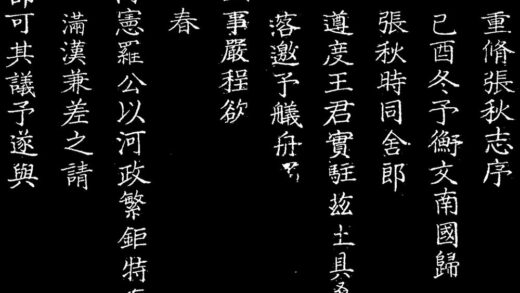 重脩張秋志序
己酉冬予衡文南國歸
張秋時同舍郎
遵度王君實駐茲土具
落邀予艤舟
事嚴程欲
春
憲羅公以河政繁鉅特
滿漢兼差之請
可其議予遂與